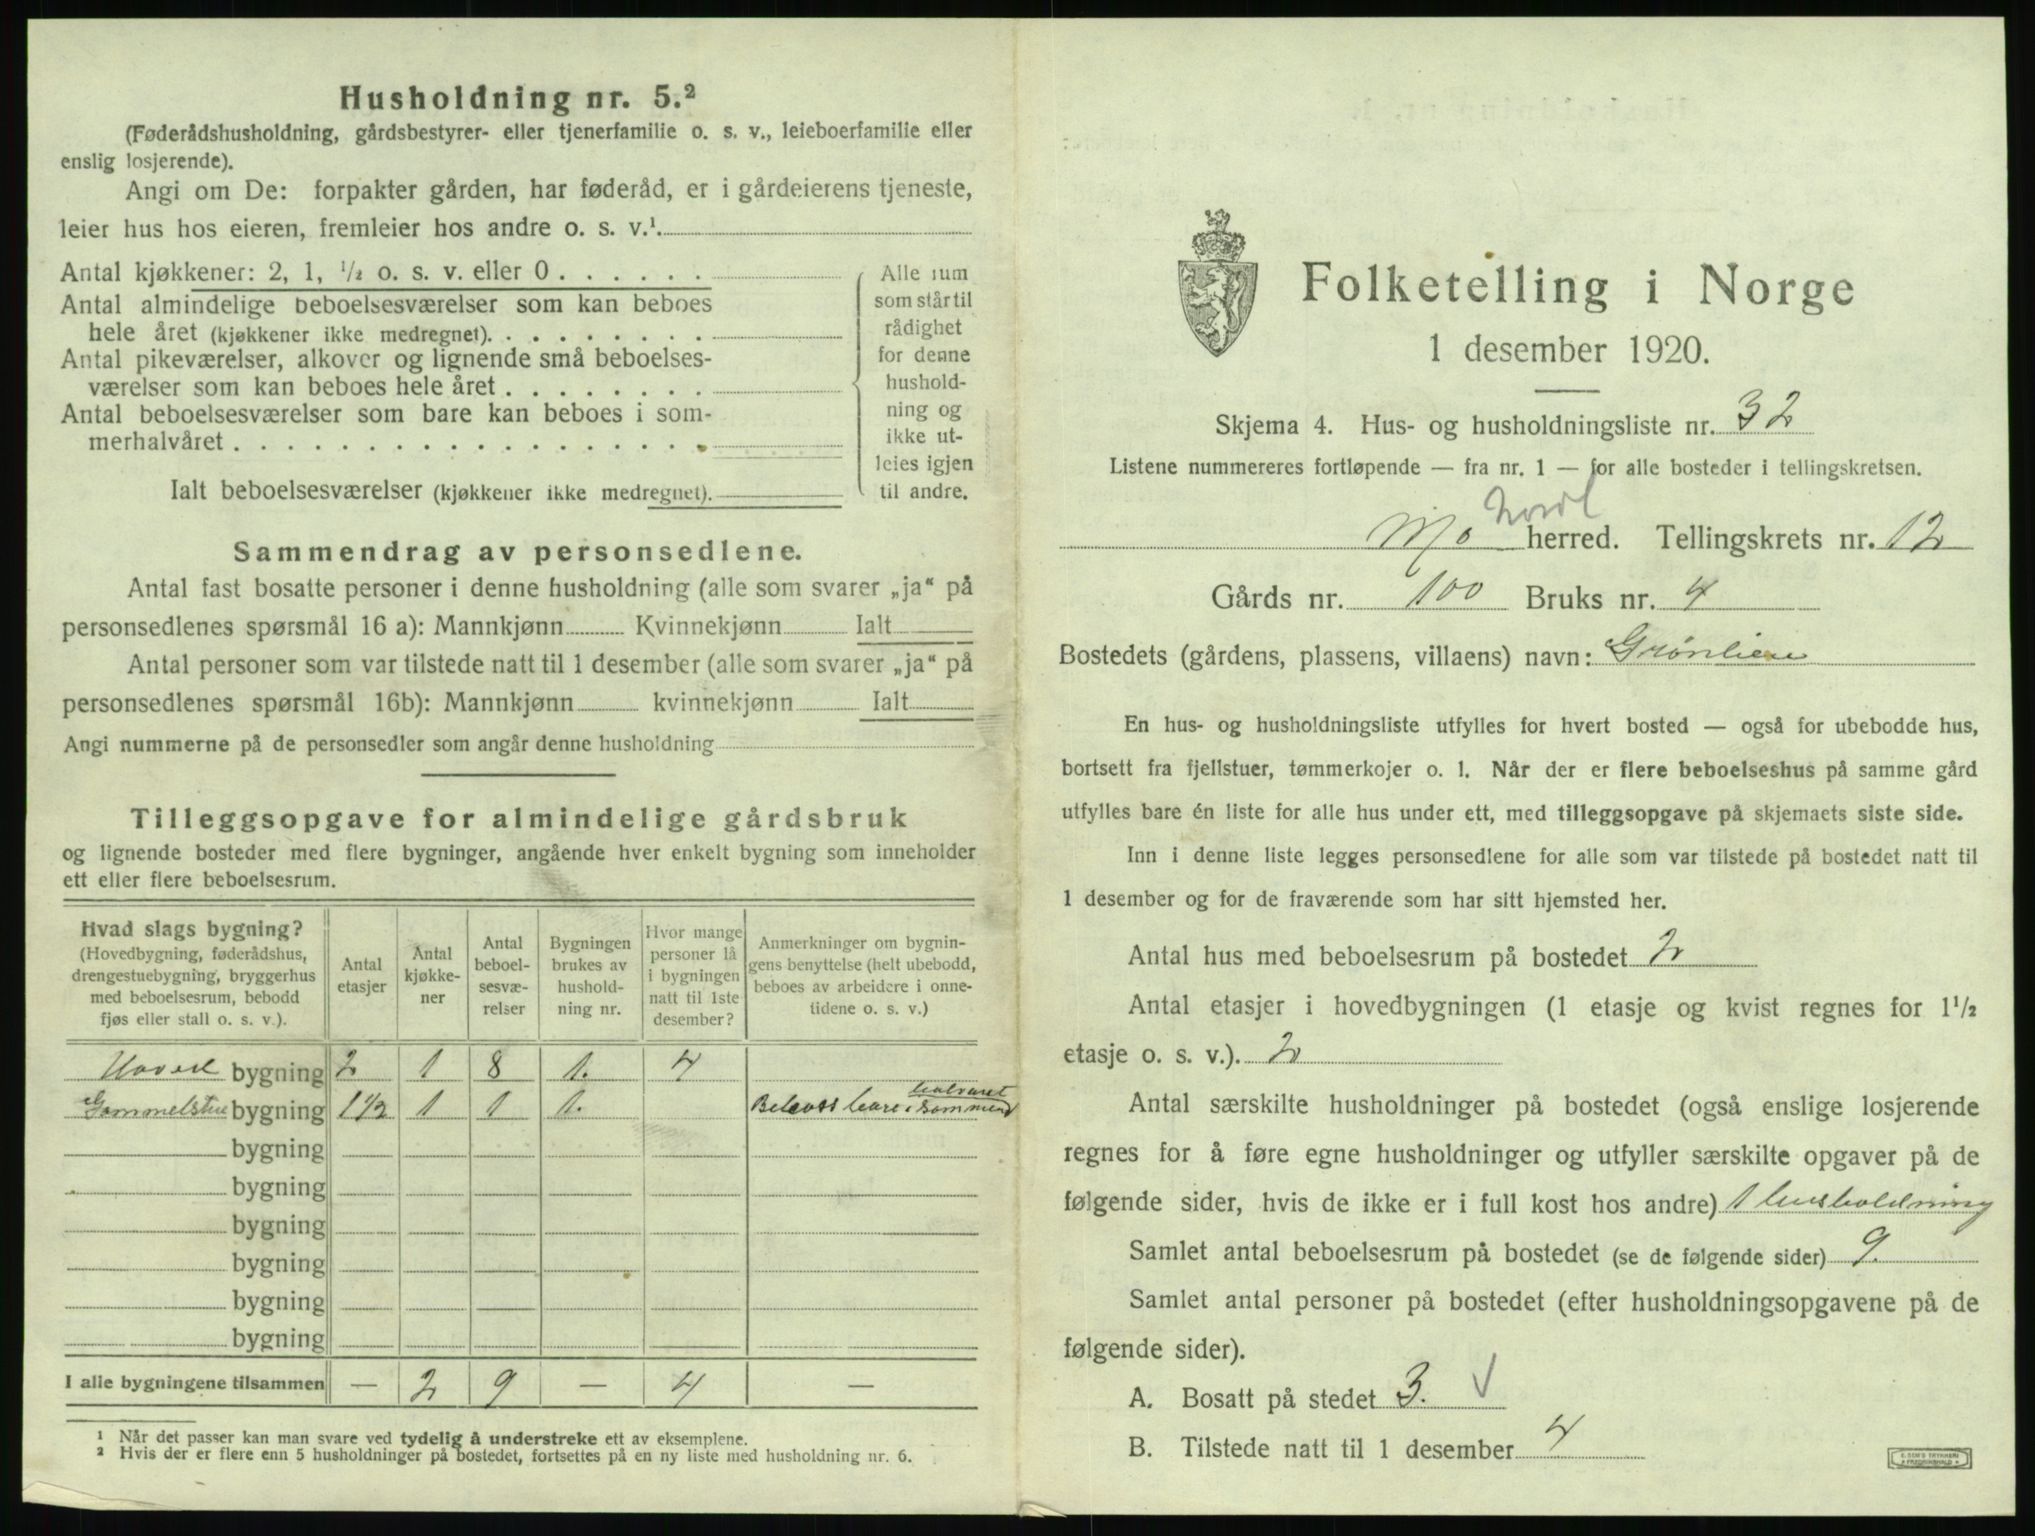 Husholdning nr. 5.²
(Føderådshusholdning, gårdsbestyrer- eller tjenerfamilie o. s. v., leieboerfamilie eller
enslig losjerende).
Angi om De: forpakter gården, har føderåd, er i gårdeierens tjeneste,
leier hus hos eieren, fremleier hos andre o. s. v.¹.
Antal kjøkkener: 2, 1, ½ o. s. v. eller 0 . . . . . .
Antal almindelige beboelsesværelser som kan beboes
hele året (kjøkkener ikke medregnet). . . . . . . . .
Antal pikeværelser, alkover og lignende små beboelses-
værelser som kan beboes hele året . . . . . . . . .
Antal beboelsesværelser som bare kan beboes i som-
merhalvåret . . . . . . . . . . . . . . . . . .
Ialt beboelsesværelser (kjøkkener ikke medregnet).
Alle rum
som står til
rådighet
for denne
hushold-
ning og
ikke ut-
leies igjen
til andre.
Sammendrag av personsedlene.
Antal fast bosatte personer i denne husholdning (alle som svarer „ja“ på
personsedlenes spørsmål 16 a): Mannkjønn Kvinnekjønn Ialt
Antal personer som var tilstede natt til 1 desember (alle som svarer „ja“ på
personsedlenes spørsmål 16b): Mannkjønn kvinnekjønn Ialt
Angi nummerne på de personsedler som angår denne husholdning
Tilleggsopgave for almindelige gårdsbruk
og lignende bosteder med flere bygninger, angående hver enkelt bygning som inneholder
ett eller flere beboelsesrum.
Hvad slags bygning?
(Hovedbygning, føderådshus,
drengestuebygning, bryggerhus
med beboelsesrum, bebodd
fjøs eller stall o. s. v.).
Antal
etasjer
Antal
kjøkke-
ner
Antal
beboel-
sesvæ-
relser
Bygningen
brukes av
hushold-
ning nr.
Hvor mange
personer lå
i bygningen
natt til 1ste
desember?
Anmerkninger om bygnin-
gens benyttelse (helt ubebodd,
beboes av arbeidere i onne-
tidene o. s. v.)
Hoved bygning 2 1 8 1. 4
Gammelstue bygning 1½ 1 1 1. bare i sommer
halvaret
bygning
bygning
bygning
bygning
bygning
bygning
I alle bygningene tilsammen — 2 9 — 4 —
¹ Når det passer kan man svare ved tydelig å understreke ett av eksemplene.
² Hvis der er flere enn 5 husholdninger på bostedet, fortsettes på en ny liste med husholdning nr. 6.
Folketelling i Norge
1 desember 1920.
Skjema 4. Hus- og husholdningsliste nr. 32
Listene nummereres fortløpende — fra nr. 1 — for alle bosteder i tellingskretsen.
Nordl
Mo herred. Tellingskrets nr. 12
Gårds nr. 100 Bruks nr. 4
Bostedets (gårdens, plassens, villaens) navn: Grønlien
En hus- og husholdningsliste utfylles for hvert bosted — også for ubebodde hus,
bortsett fra fjellstuer, tømmerkojer o. l. Når der er flere beboelseshus på samme gård
utfylles bare én liste for alle hus under ett, med tilleggsopgave på skjemaets siste side.
Inn i denne liste legges personsedlene for alle som var tilstede på bostedet natt til
1 desember og for de fraværende som har sitt hjemsted her.
Antal hus med beboelsesrum på bostedet 2
Antal etasjer i hovedbygningen (1 etasje og kvist regnes for 1½
etasje o. s. v.). 2
Antal særskilte husholdninger på bostedet (også enslige losjerende
regnes for å føre egne husholdninger og utfyller særskilte opgaver på de
følgende sider, hvis de ikke er i full kost hos andre) 1 husholdning
Samlet antal beboelsesrum på bostedet (se de følgende sider) 9.
Samlet antal personer på bostedet (efter husholdningsopgavene på de
følgende sider).
A. Bosatt på stedet 3. √
B. Tilstede natt til 1 desember 4